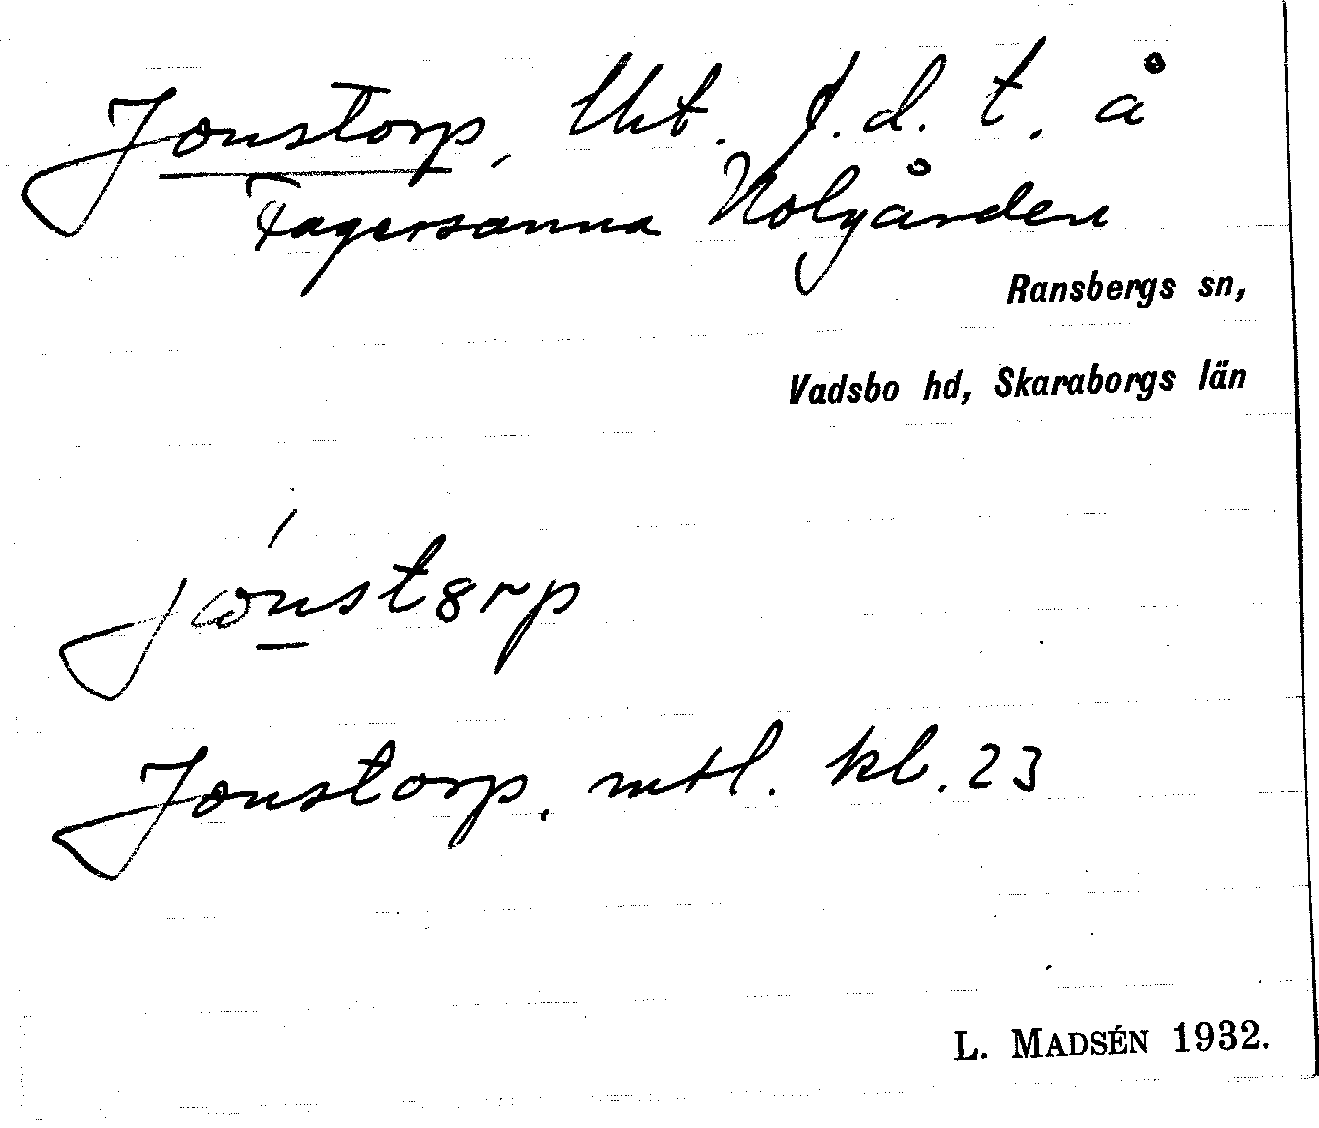 Jonstorp, lht. f. d. t. å
Fagersanna Nolgården
Ransbergs sn,
Vadsbo hd, Skaraborgs län
jonst8rp
Jonstorp. mtl. kl. 23
L. MADSÉN 1932.